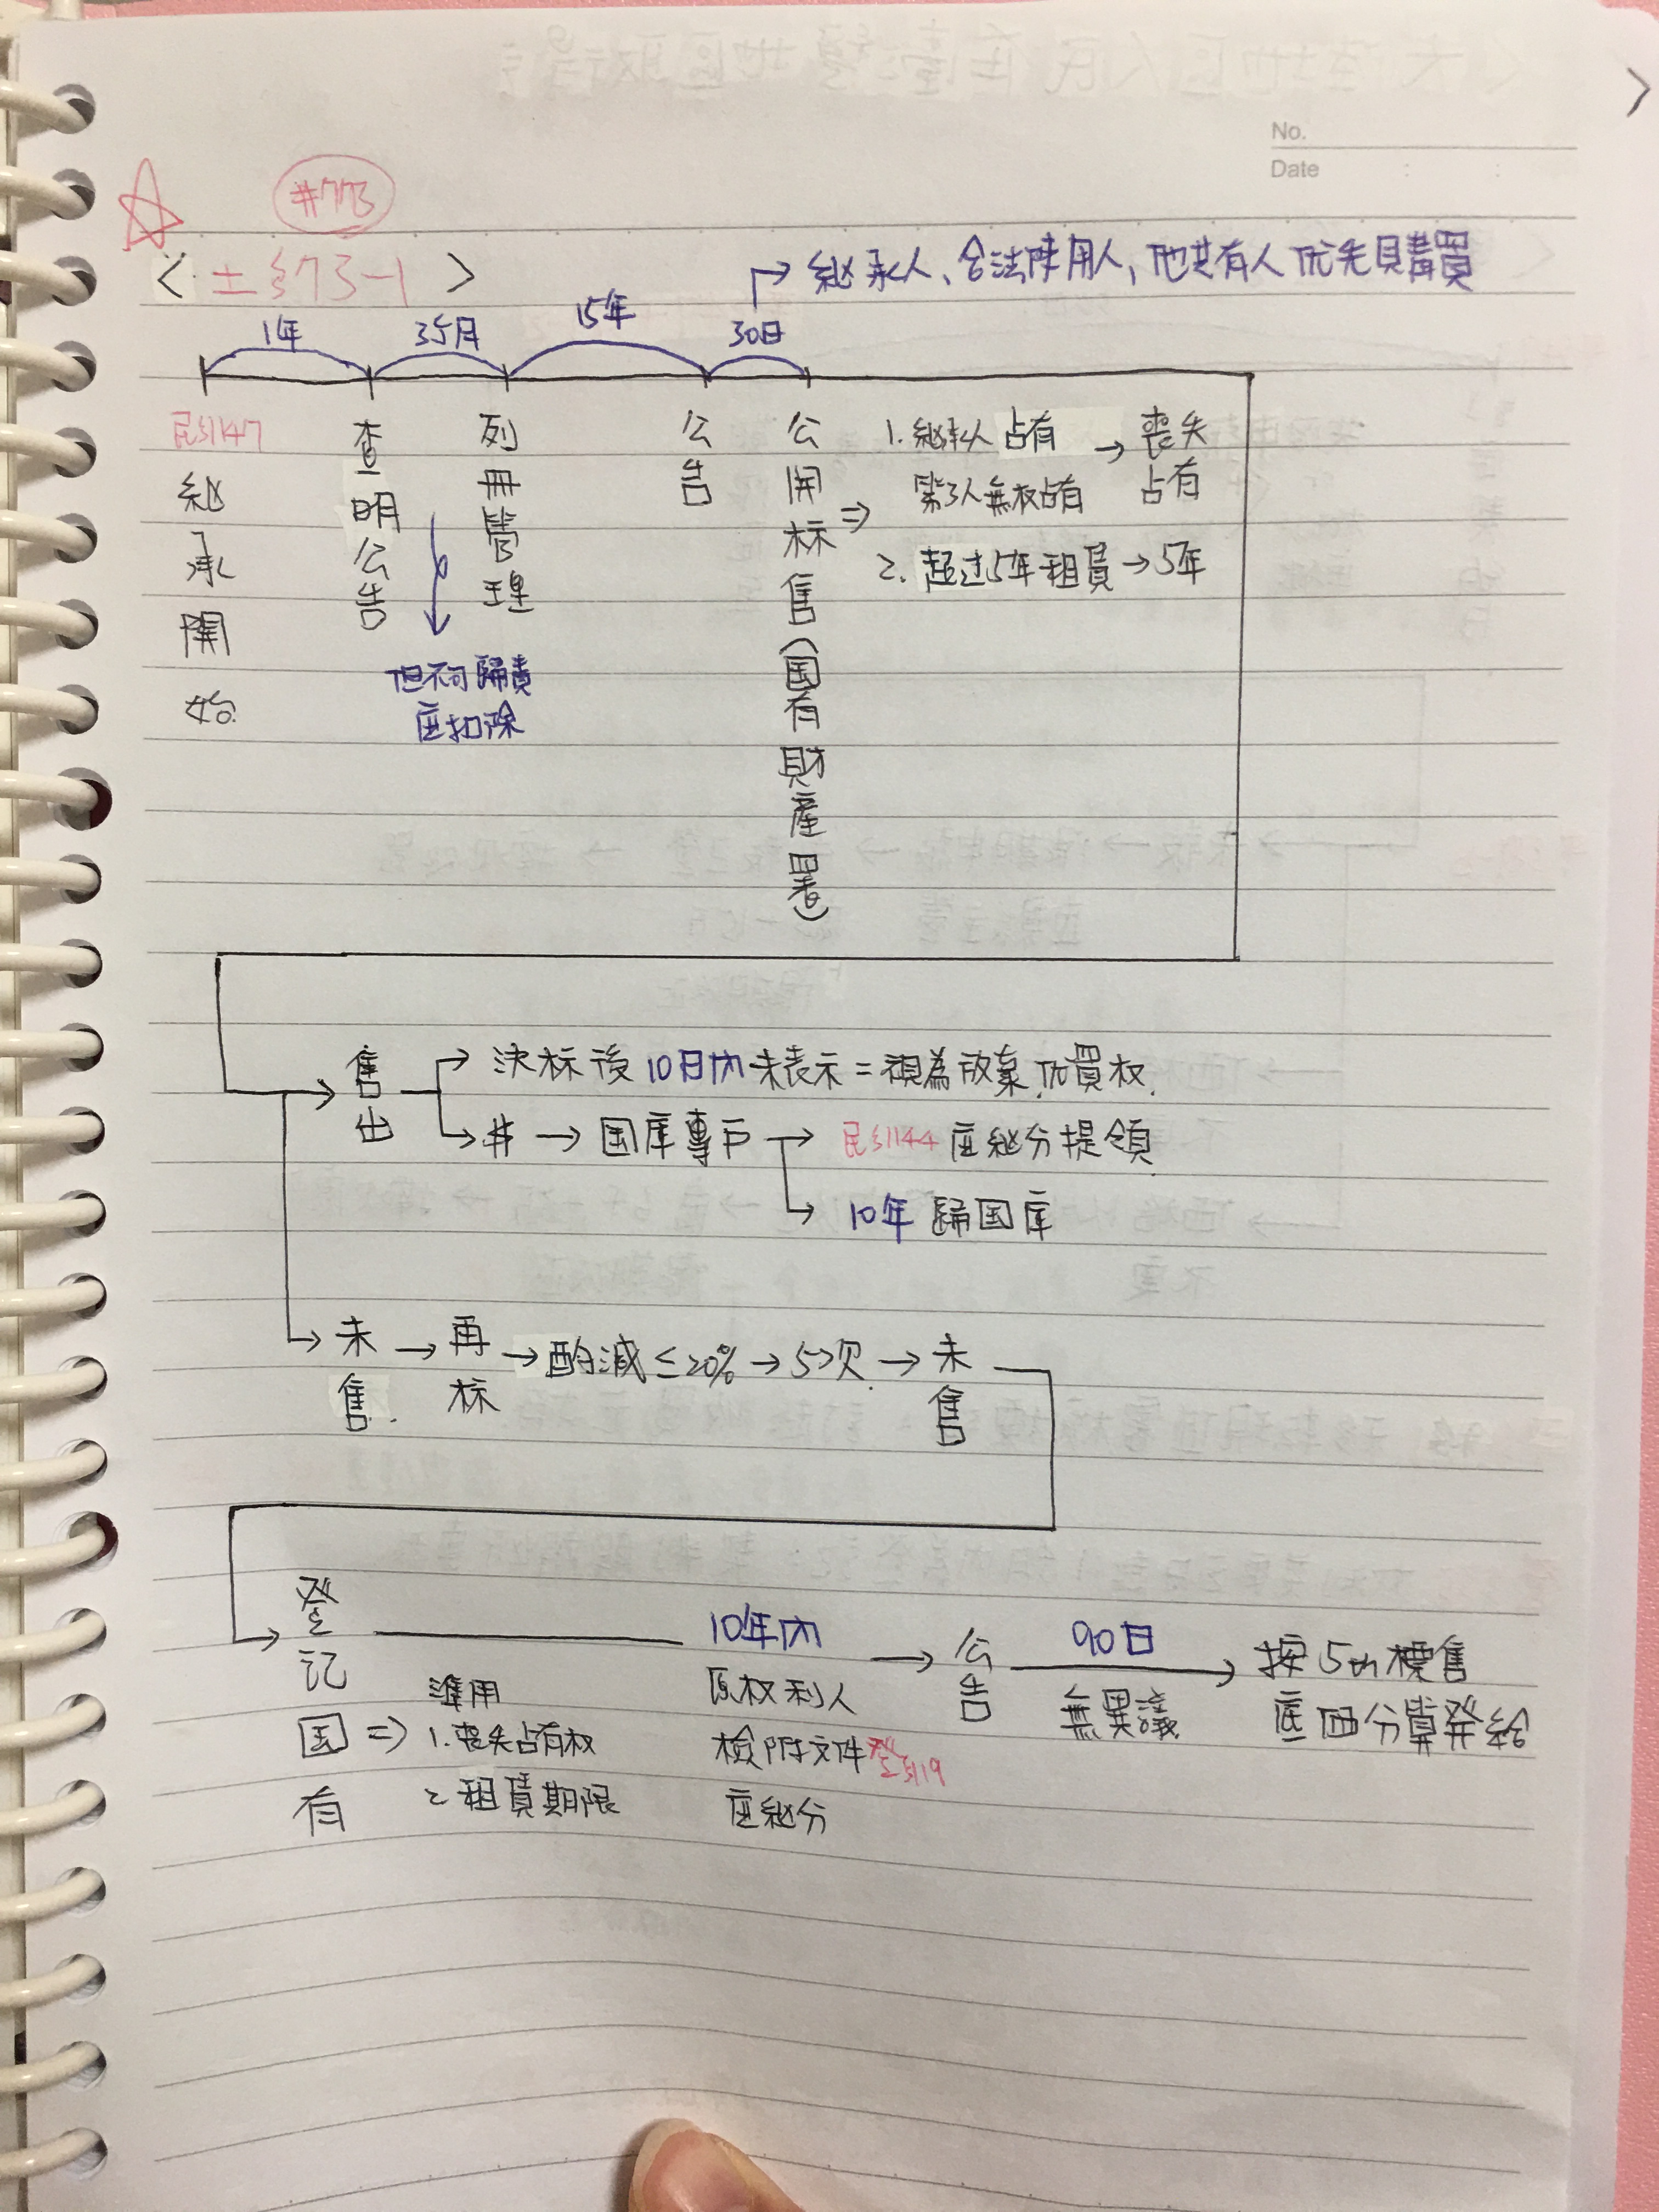 No.
Date
#773
<土§73-1>
→ 継承人、合法使用人, 他共有人优先購買
1年
3个月
15年
30日
民§1147
継承開始
查明公告
列冊管理
但不可歸責
应扣除
公告
公開标售(国有財產署)
⇒
1. 継承人占有
第3人無权占有
→ 喪失
占有
2. 超过5年租賃→5年
售出
→ 決标後10日內未表示=視為放棄优買权.
→ $ → 国庫專戶 → 民§1144 应継分提領
→ 10年 歸国庫
未售. → 再标 → 酌減≤20% → 5次. → 未售
→ 登記国有 ⇒
準用
1. 喪失占有权
2. 租賃期限
10年內
原权利人
檢附文件 登§119
应継分
→ 公告
90日
無異議
→ 按5th標售
底価分算発給